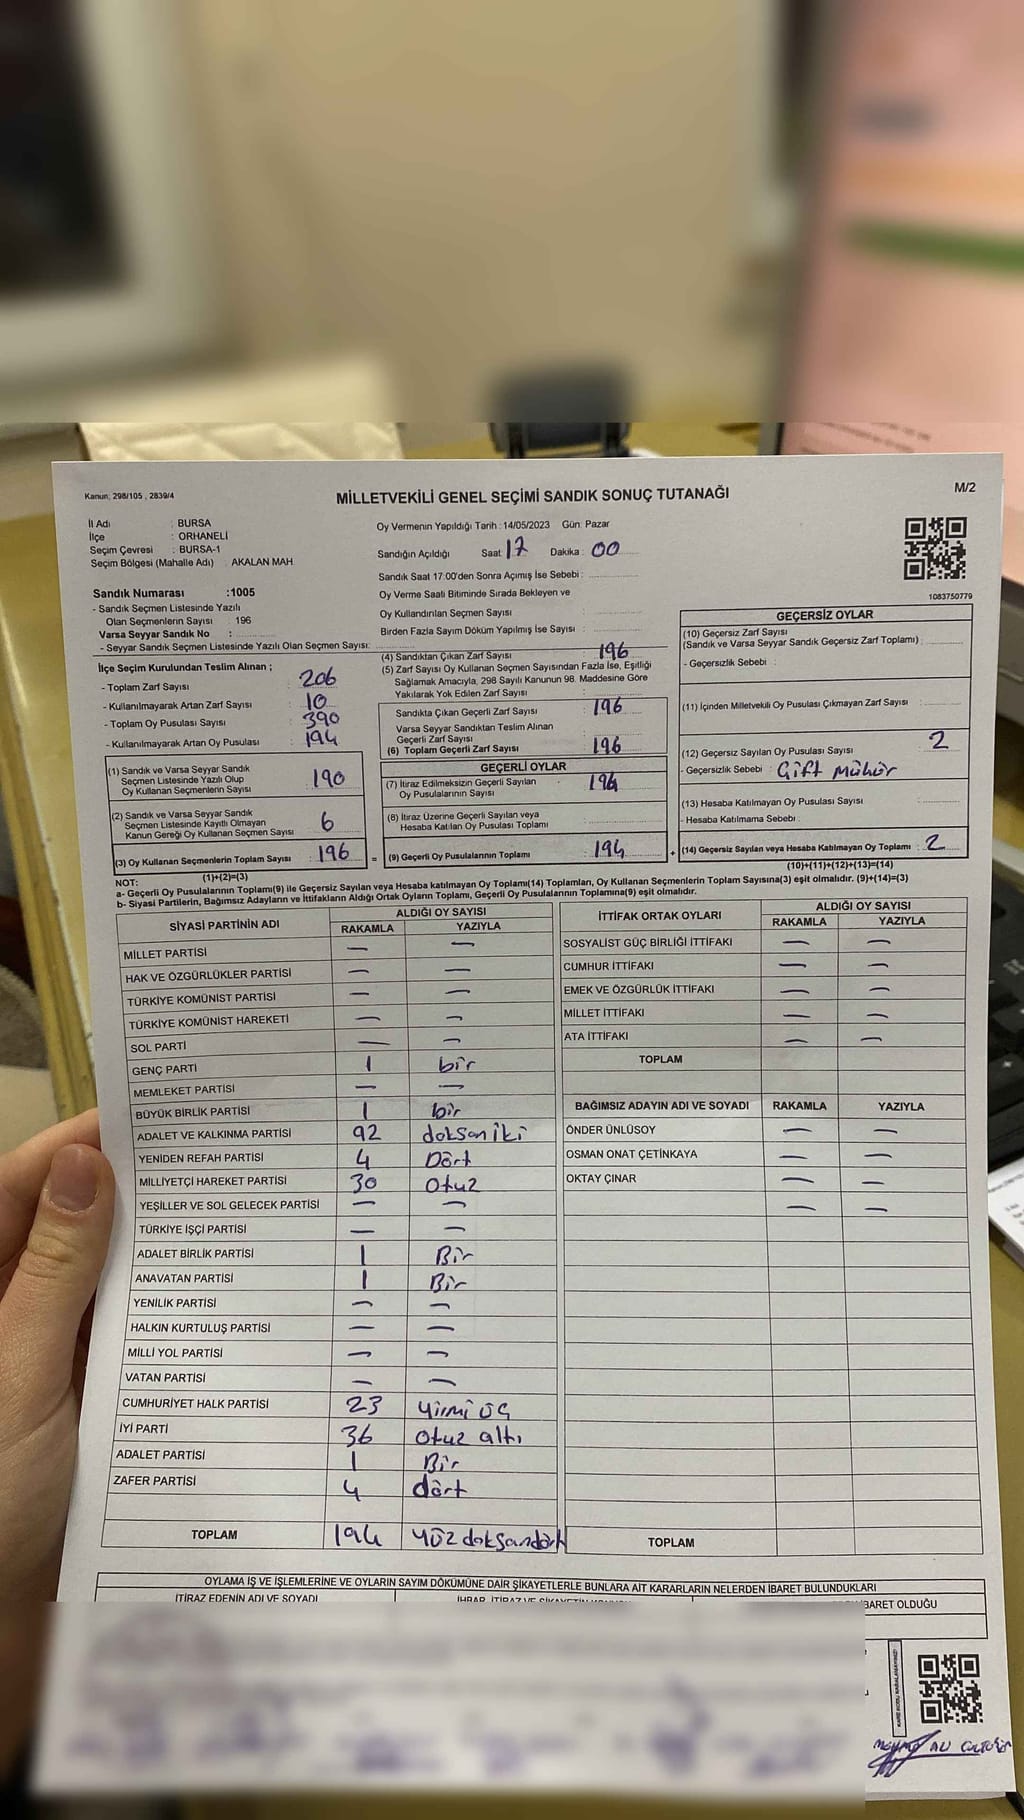 Kanun; 298/105 , 2839/4
MİLLETVEKİLİ GENEL SEÇİMİ SANDIK SONUÇ TUTANAĞI
M/2
İl Adı : BURSA
İlçe : ORHANELİ
Seçim Çevresi : BURSA-1
Seçim Bölgesi (Mahalle Adı) : AKALAN MAH
Oy Vermenin Yapıldığı Tarih : 14/05/2023 Gün: Pazar
Sandığın Açıldığı Saat : 17 Dakika : 00
Sandık Saat 17:00'den Sonra Açımış İse Sebebi :
Oy Verme Saati Bitiminde Sırada Bekleyen ve
Oy Kullandırılan Seçmen Sayısı :
Birden Fazla Sayım Döküm Yapılmış İse Sayısı :
1083750779
Sandık Numarası :1005
- Sandık Seçmen Listesinde Yazılı
Olan Seçmenlerin Sayısı : 196
Varsa Seyyar Sandık No :
- Seyyar Sandık Seçmen Listesinde Yazılı Olan Seçmen Sayısı:
İlçe Seçim Kurulundan Teslim Alınan ;
- Toplam Zarf Sayısı : 206
- Kullanılmayarak Artan Zarf Sayısı : 10
- Toplam Oy Pusulası Sayısı : 390
- Kullanılmayarak Artan Oy Pusulası : 194
(1) Sandık ve Varsa Seyyar Sandık
Seçmen Listesinde Yazılı Olup
Oy Kullanan Seçmenlerin Sayısı : 190
(2) Sandık ve Varsa Seyyar Sandık
Seçmen Listesinde Kayıtlı Olmayan
Kanun Gereği Oy Kullanan Seçmen Sayısı : 6
(3) Oy Kullanan Seçmenlerin Toplam Sayısı : 196
(1)+(2)=(3)
(4) Sandıktan Çıkan Zarf Sayısı : 196
(5) Zarf Sayısı Oy Kullanan Seçmen Sayısından Fazla İse, Eşitliği
Sağlamak Amacıyla, 298 Sayılı Kanunun 98. Maddesine Göre
Yakılarak Yok Edilen Zarf Sayısı :
Sandıkta Çıkan Geçerli Zarf Sayısı : 196
Varsa Seyyar Sandıktan Teslim Alınan
Geçerli Zarf Sayısı :
(6) Toplam Geçerli Zarf Sayısı : 196
GEÇERLİ OYLAR
(7) İtiraz Edilmeksizin Geçerli Sayılan
Oy Pusulalarının Sayısı : 194
(8) İtiraz Üzerine Geçerli Sayılan veya
Hesaba Katılan Oy Pusulası Toplamı :
= (9) Geçerli Oy Pusulalarının Toplamı : 194 +
GEÇERSİZ OYLAR
(10) Geçersiz Zarf Sayısı
(Sandık ve Varsa Seyyar Sandık Geçersiz Zarf Toplamı) :
- Geçersizlik Sebebi :
(11) İçinden Milletvekili Oy Pusulası Çıkmayan Zarf Sayısı :
(12) Geçersiz Sayılan Oy Pusulası Sayısı : 2
- Geçersizlik Sebebi : Çift Mühür
(13) Hesaba Katılmayan Oy Pusulası Sayısı :
- Hesaba Katılmama Sebebi :
(14) Geçersiz Sayılan veya Hesaba Katılmayan Oy Toplamı : 2
(10)+(11)+(12)+(13)=(14)
NOT:
a- Geçerli Oy Pusulalarının Toplamı(9) ile Geçersiz Sayılan veya Hesaba katılmayan Oy Toplamı(14) Toplamları, Oy Kullanan Seçmenlerin Toplam Sayısına(3) eşit olmalıdır. (9)+(14)=(3)
b- Siyasi Partilerin, Bağımsız Adayların ve İttifakların Aldığı Ortak Oyların Toplamı, Geçerli Oy Pusulalarının Toplamına(9) eşit olmalıdır.
SİYASİ PARTİNİN ADI ALDIĞI OY SAYISI
RAKAMLA YAZIYLA
MİLLET PARTİSİ — —
HAK VE ÖZGÜRLÜKLER PARTİSİ — —
TÜRKİYE KOMÜNİST PARTİSİ — —
TÜRKİYE KOMÜNİST HAREKETİ — —
SOL PARTİ — —
GENÇ PARTİ 1 bir
MEMLEKET PARTİSİ — —
BÜYÜK BİRLİK PARTİSİ 1 bir
ADALET VE KALKINMA PARTİSİ 92 doksan iki
YENİDEN REFAH PARTİSİ 4 Dört
MİLLİYETÇİ HAREKET PARTİSİ 30 Otuz
YEŞİLLER VE SOL GELECEK PARTİSİ — —
TÜRKİYE İŞÇİ PARTİSİ — —
ADALET BİRLİK PARTİSİ 1 Bir
ANAVATAN PARTİSİ 1 Bir
YENİLİK PARTİSİ — —
HALKIN KURTULUŞ PARTİSİ — —
MİLLİ YOL PARTİSİ — —
VATAN PARTİSİ — —
CUMHURİYET HALK PARTİSİ 23 yirmi üç
İYİ PARTİ 36 otuz altı
ADALET PARTİSİ 1 Bir
ZAFER PARTİSİ 4 dört
TOPLAM 194 yüz doksandört
İTTİFAK ORTAK OYLARI ALDIĞI OY SAYISI
RAKAMLA YAZIYLA
SOSYALİST GÜÇ BİRLİĞİ İTTİFAKI — —
CUMHUR İTTİFAKI — —
EMEK VE ÖZGÜRLÜK İTTİFAKI — —
MİLLET İTTİFAKI — —
ATA İTTİFAKI — —
TOPLAM
BAĞIMSIZ ADAYIN ADI VE SOYADI RAKAMLA YAZIYLA
ÖNDER ÜNLÜSOY — —
OSMAN ONAT ÇETİNKAYA — —
OKTAY ÇINAR — —
— —
TOPLAM
OYLAMA İŞ VE İŞLEMLERİNE VE OYLARIN SAYIM DÖKÜMÜNE DAİR ŞİKAYETLERLE BUNLARA AİT KARARLARIN NELERDEN İBARET BULUNDUKLARI
İTİRAZ EDENİN ADI VE SOYADI
BARET OLDUĞU